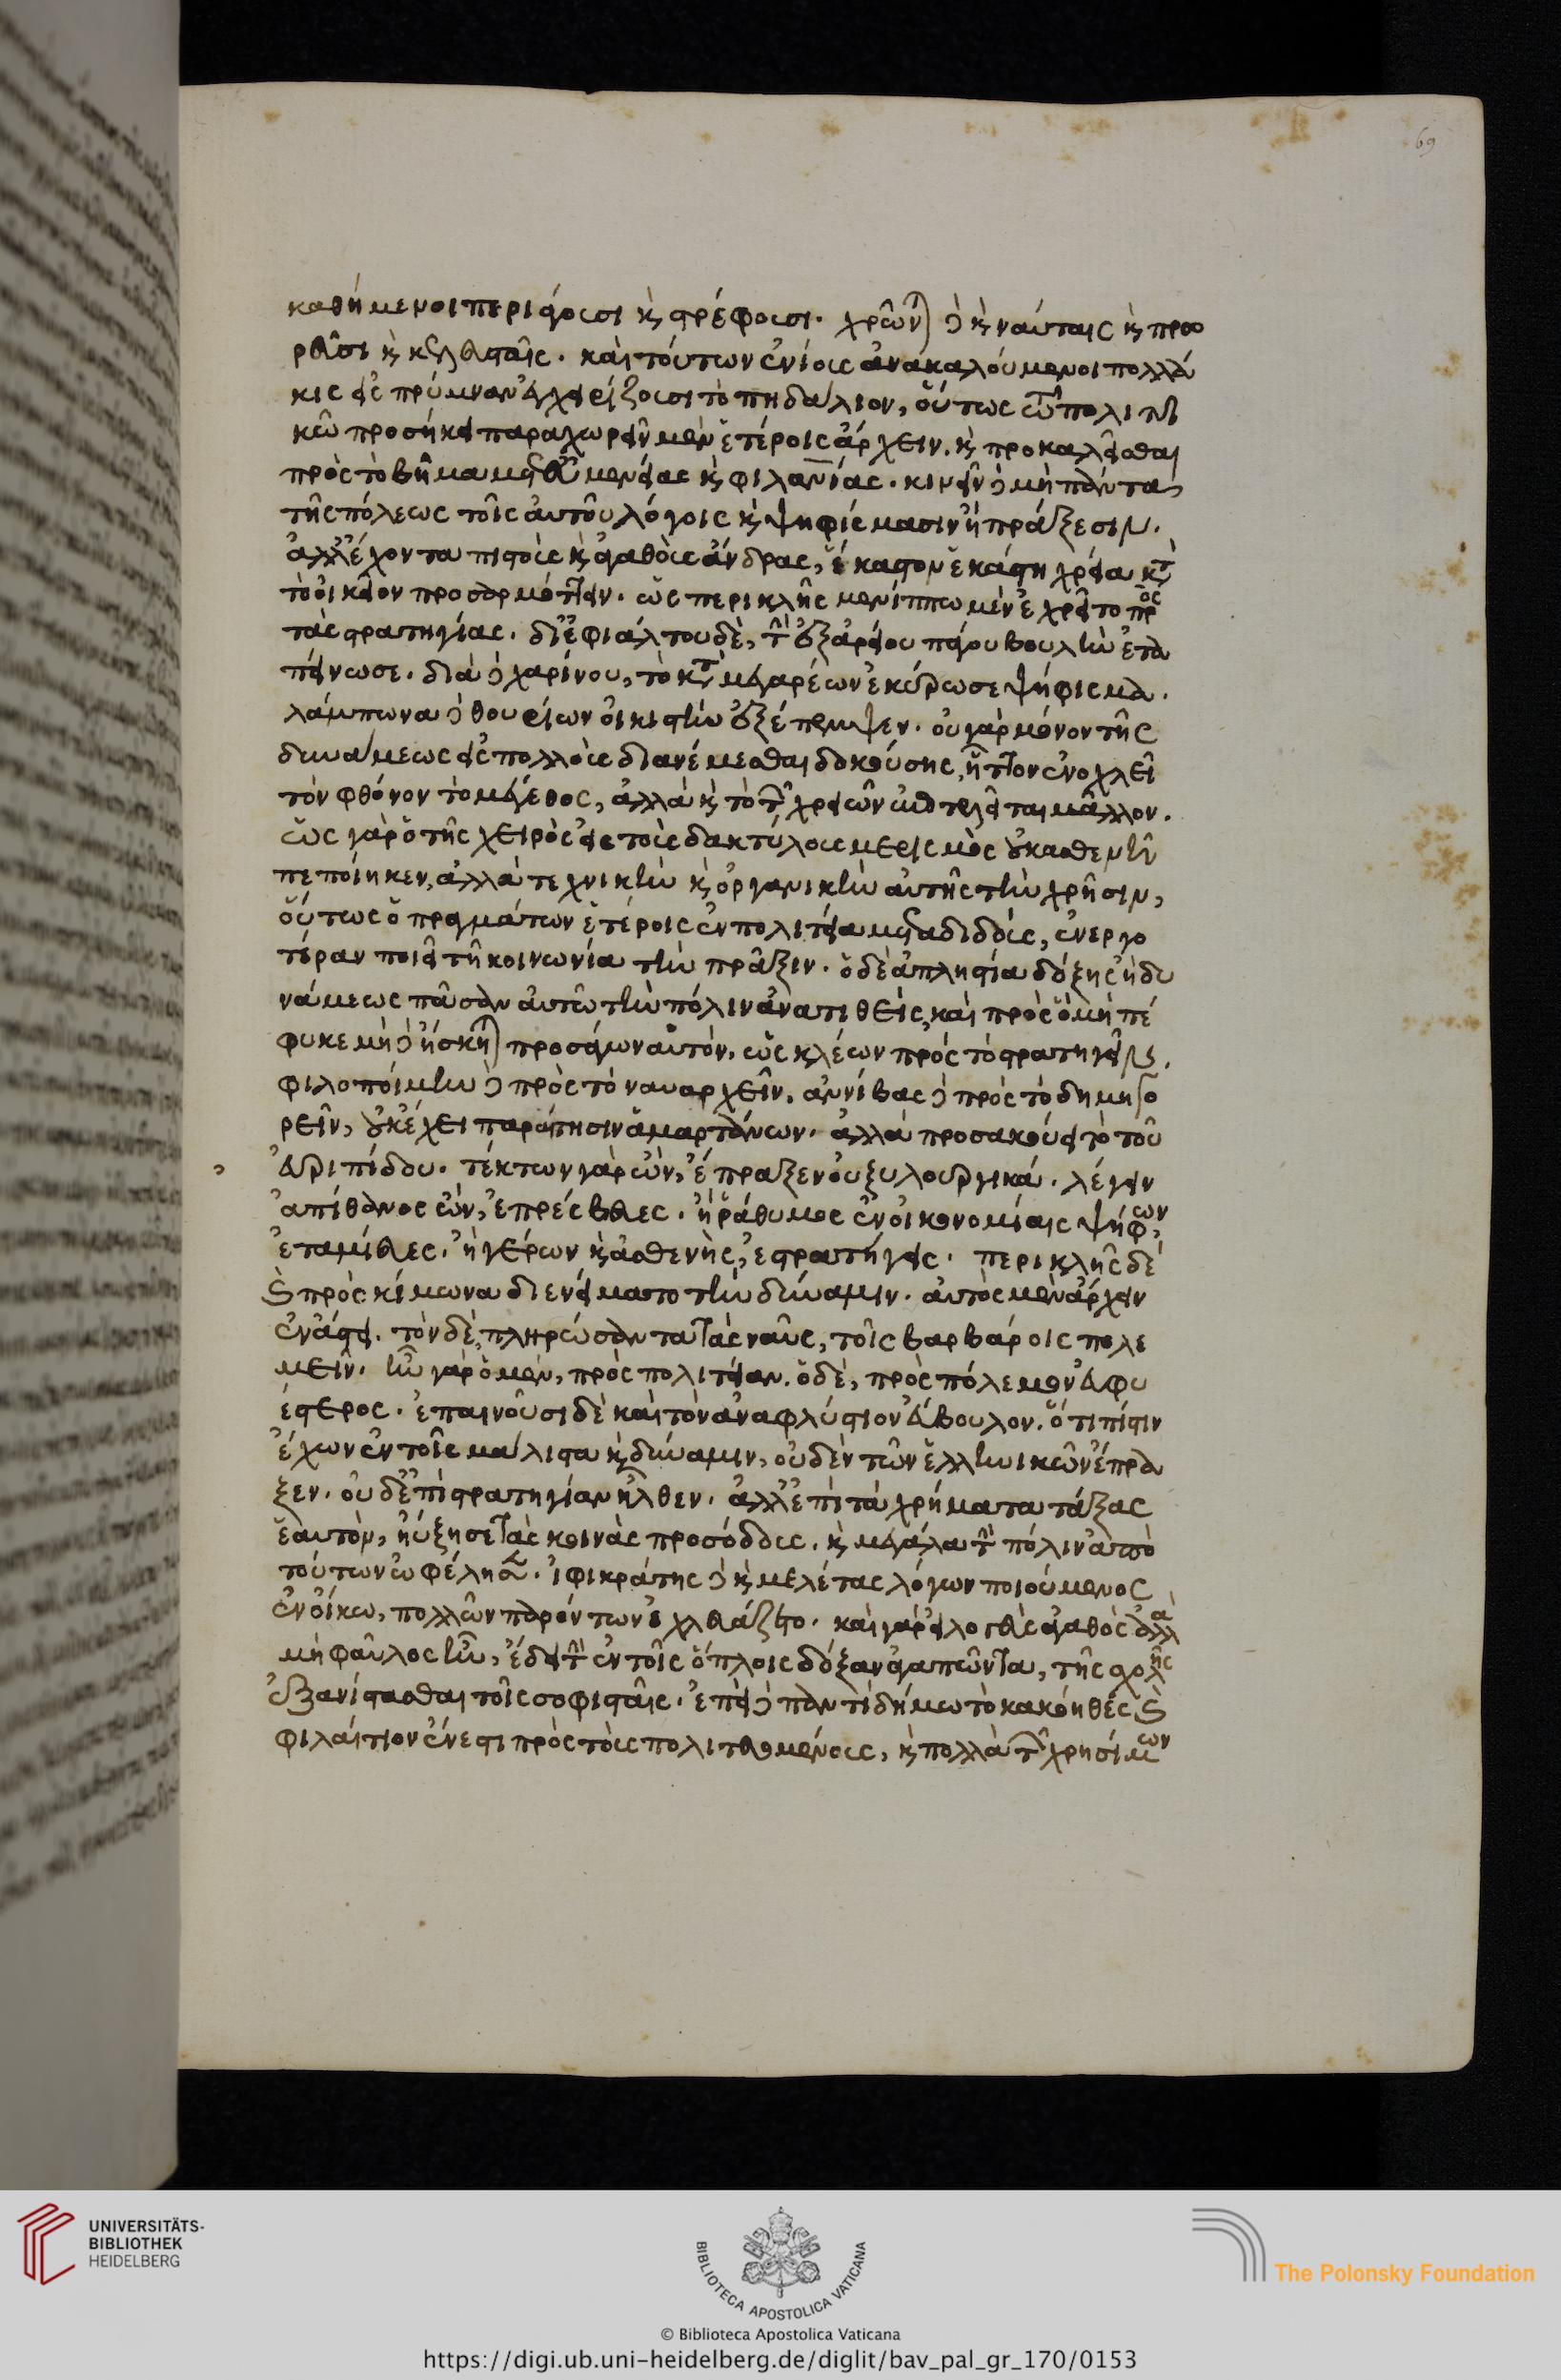 69
καθήμενοι περιάγουσι καὶ στρέφουσι. χρῶνται δὲ καὶ ναύταις καὶ πρω
ρεῦσι καὶ κελευσταῖς. καὶ τούτων ἐνίους ἀνακαλούμενοι πολλά
κις εἰς πρύμναν ἐγχειρίζουσι τὸ πηδάλιον, οὕτως τῶ πολιτι
κῶ προσήκει παραχωρεῖν μὲν ἑτέροις ἄρχειν. καὶ προκαλεῖσθαι
πρὸς τὸ βῆμα μετ' εὐμενείας καὶ φιλανίας. κινεῖν δὲ μὴ πάντα
τῆς πόλεως τοῖς αὐτοῦ λόγοις καὶ ψηφίσμασιν ἢ πράξεσιν.
ἀλλ' ἔχοντα πιστοὺς καὶ ἀγαθοὺς ἄνδρας, ἕκαστον ἑκάστη χρεία κατὰ
τὸ οἰκεῖον προσαρμόττειν. ὡς περικλῆς μενίππω μὲν ἐχρῆτο πρὸς
τὰς στρατηγίας. δι' ἐφιάλτου δὲ, τὴν ἐξ ἀρείου πάγου βουλὴν ἐτα
πείνωσε. διὰ δὲ χαρίνου, τὸ κατὰ μεγαρέων ἐκύρωσε ψήφισμα.
λάμπωνα δὲ θουρίων οἰκιστὴν ἐξέπεμψεν. οὐ γὰρ μόνον τῆς
δυνάμεως εἰς πολλοὺς διανέμεσθαι δοκούσης, ἧττον ἐνοχλεῖ
τὸν φθόνον τὸ μέγεθος, ἀλλὰ καὶ τὸ τῶν χρειῶν ἐπιτελεῖται μᾶλλον.
ὡς γὰρ ὁ τῆς χειρὸς εἰς τοὺς δακτύλους μερισμὸς οὐκ ἀσθενῆ
πεποίηκεν, ἀλλὰ τεχνικὴν καὶ ὀργανικὴν αὐτῆς τὴν χρῆσιν,
οὕτως ὁ πραγμάτων ἑτέροις ἐν πολιτεία μεταδιδοὺς, ἐνεργο
τέραν ποιεῖ τῆ κοινωνία τὴν πρᾶξιν. ὁ δὲ ἀπληστία δόξης ἢ δυ
νάμεως πᾶσαν αὐτῶ τὴν πόλιν ἀνατιθεὶς, καὶ πρὸς ὃ μὴ πέ
φυκε μὴ δὲ ἤσκηται προσάγων αὐτὸν, ὡς κλέων πρὸς τὸ στρατηγεῖν.
φιλοποίμην δὲ πρὸς τὸ ναυαρχεῖν. ἀννίβας δὲ πρὸς τὸ δημηγο
ρεῖν, οὐκ ἔχει παραίτησιν ἁμαρτάνων. ἀλλὰ προσακούει τὸ τοῦ
εὐριπίδου. τέκτων γὰρ ὢν, ἔπραξεν οὐ ξυλουργικά. λέγειν
ἀπίθανος ὢν, ἐπρέσβευες. ἢ ῥάθυμος ἐν οἰκονομίαις ψήφων,
ἐταμίευες. ἢ γέρων καὶ ἀσθενὴς, ἐστρατήγεις. περικλῆς δὲ
καὶ πρὸς κίμωνα διενείματο τὴν δύναμιν. αὐτὸς μὲν ἄρχειν
ἐν ἄστει. τὸν δὲ, πληρώσαντα τὰς ναῦς, τοῖς βαρβάροις πολε
μεῖν. ἦν γὰρ ὁ μὲν, πρὸς πολιτείαν. ὁ δὲ, πρὸς πόλεμον εὐφυ
έστερος. ἐπαινοῦσι δὲ καὶ τὸν ἀναφλύστιον εὔβουλον. ὅτι πίστιν
ἔχων ἐν τοῖς μάλιστα καὶ δύναμιν, οὐδὲν τῶν ἑλληνικῶν ἔπρα
ξεν. οὐδ' ἐπὶ στρατηγίαν ἦλθεν. ἀλλ' ἐπὶ τὰ χρήματα τάξας
ἑαυτὸν, ηὔξησε τὰς κοινὰς προσόδους. καὶ μεγάλα τὴν πόλιν ἀπὸ
τούτων ὠφέλησεν. ἰφικράτης δὲ καὶ μελέτας λόγων ποιούμενος
ἐν οἴκω, πολλῶν παρόντων ἐχλευάζετο. καὶ γὰρ εἰ λογεὺς ἀγαθὸς ἀλλὰ
μὴ φαῦλος ἦν, ἔδει τὴν ἐν τοῖς ὅπλοις δόξαν ἀγαπῶντα, τῆς σχολῆς
ἐξανίστασθαι τοῖς σοφισταῖς. ἐπεὶ δὲ παντὶ δήμω τὸ κακόηθες καὶ
φιλαίτιον ἔνεστι πρὸς τοὺς πολιτευομένους, καὶ πολλὰ τῶν χρησίμων
UNIVERSITÄTS-
BIBLIOTHEK
HEIDELBERG
BIBLIOTECA APOSTOLICA VATICANA
The Polonsky Foundation
© Biblioteca Apostolica Vaticana
https://digi.ub.uni-heidelberg.de/diglit/bav_pal_gr_170/0153